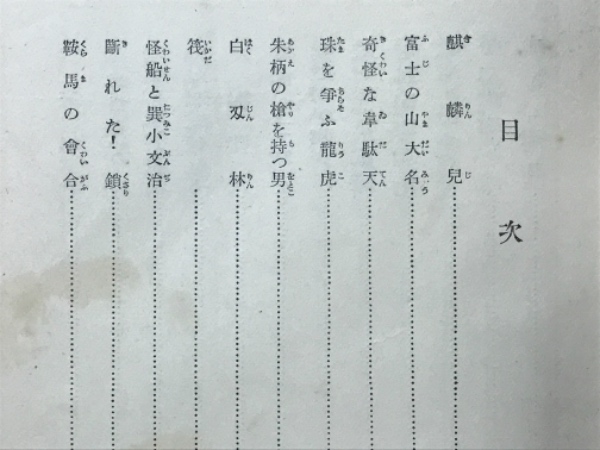 目次
麒麟兒
富士の山大名
奇怪な韋駄天
珠を爭ふ龍虎
朱柄の槍を持つ男
白刄林
筏
怪船と巽小文治
斷れた！鎖
鞍馬の會合